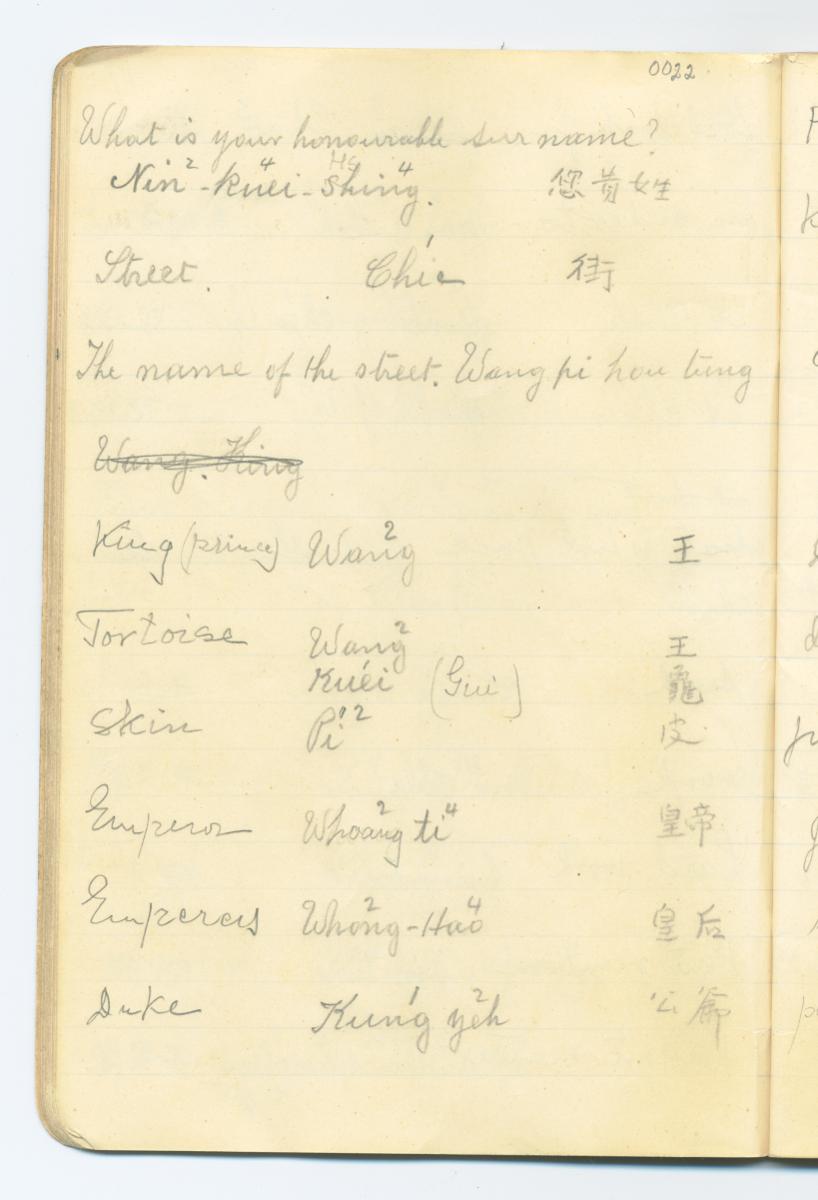 0022
What is your honourable surname?
Nin² - kuei⁴ - Shing⁴. 您貴姓
Hs
Street. Chie¹ 街
The name of the street. Wang pi hou tung
Wang. King
King (prince) Wang² 王
Tortoise Wang² 王
Kuéi (Gui) 龜
Skin Pi'² 皮
Emperor Whoang² ti⁴ 皇帝
Emperess Whong² - Hao⁴ 皇后
Duke Kung¹ yeh² 公爺